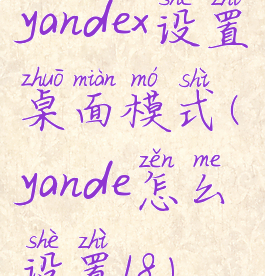 shè zhì
yandex设置
zhuō miàn mó shì
桌面模式(
zěn me
yande怎么
shè zhì
设置(8)